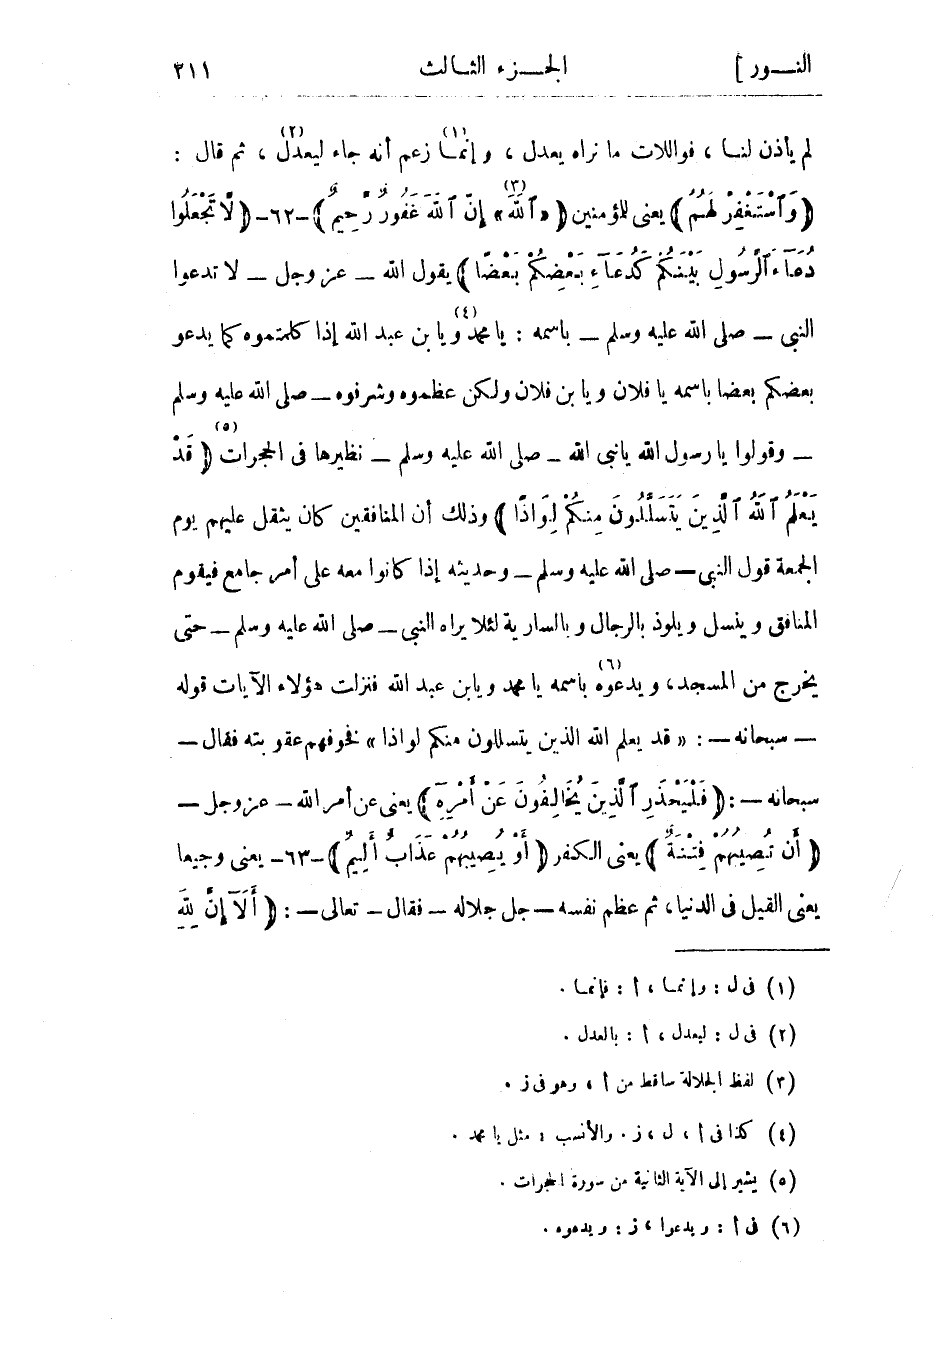 النـــور ] الجـــزء الثـالث ٢١١
لم يأذن لنـا ، فواللات ما نراه يعدل ، وإنمـا (١) زعم أنه جاء ليعدل (٢) ، ثم قال :
﴿ وَٱسْتَغْفِرْ لَهُمُ ﴾ يعنى للمؤمنين ﴿ «ٱللَّهَ» (٣) إِنَّ ٱللَّهَ غَفُورٌ رَّحِيمٌ ﴾ -٦٢- ﴿ لَّا تَجْعَلُوا
دُعَآءَ ٱلرَّسُولِ بَيْنَكُمْ كَدُعَآءِ بَعْضِكُمْ بَعْضًا ﴾ يقول الله — عز وجل — لا تدعوا
النبى — صلى الله عليه وسلم — باسمه : يا محمد (٤) ويا بن عبد الله إذا كلمتموه كما يدعو
بعضكم بعضا باسمه يا فلان ويا بن فلان ولكن عظموه وشرفوه — صلى الله عليه وسلم
— وقولوا يا رسول الله يانبى الله — صلى الله عليه وسلم — نظيرها فى الحجرات (٥) ﴿ قَدْ
يَعْلَمُ ٱللَّهُ ٱلَّذِينَ يَتَسَلَّلُونَ مِنكُمْ لِوَاذًا ﴾ وذلك أن المنافقين كان يثقل عليهم يوم
الجمعة قول النبى — صلى الله عليه وسلم — وحديثه إذا كانوا معه على أمر جامع فيقوم
المنافق وينسل ويلوذ بالرجال وبالسارية لئلا يراه النبى — صلى الله عليه وسلم — حتى
يخرج من المسجد، ويدعوه (٦) باسمه يا محمد ويابن عبد الله فنزلت هؤلاء الآيات قوله
— سبحانه — : « قد يعلم الله الذين يتسللون منكم لواذا » فخوفهم عقوبته فقال —
سبحانه — : ﴿ فَلْيَحْذَرِ ٱلَّذِينَ يُخَالِفُونَ عَنْ أَمْرِهِ ﴾ يعنى عن أمر الله — عز وجل —
﴿ أَن تُصِيبَهُمْ فِتْنَةٌ ﴾ يعنى الكفر ﴿ أَوْ يُصِيبَهُمْ عَذَابٌ أَلِيمٌ ﴾ -٦٣- يعنى وجيعا
يعنى القتل فى الدنيا، ثم عظم نفسه — جل جلاله — فقال — تعالى — : ﴿ أَلَآ إِنَّ لِلَّهِ
(١) فى ل : وإنمـا ، أ : فإنمـا .
(٢) فى ل : ليعدل ، أ : بالعدل .
(٣) لفظ الجلالة ساقط من أ ، وهو فى ز .
(٤) كذا فى أ ، ل ، ز . والأنسب : مثل يا محمد .
(٥) يشير إلى الآية الثانية من سورة الحجرات .
(٦) فى أ : ويدعوا ، ز : ويدعوه .